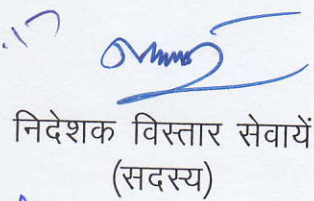 निदेशक विस्तार सेवायें
(सदस्य)